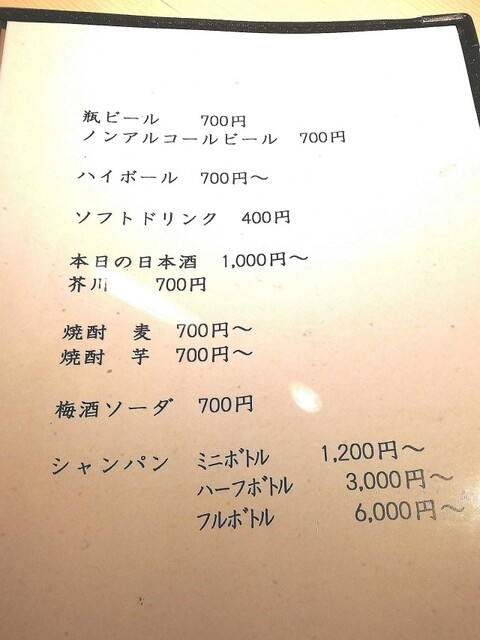 瓶ビール　700円
ノンアルコールビール　700円
ハイボール　700円～
ソフトドリンク　400円
本日の日本酒　1,000円～
芥川　700円
焼酎　麦　700円～
焼酎　芋　700円～
梅酒ソーダ　700円
シャンパン　ﾐﾆﾎﾞﾄﾙ　1,200円～
ﾊｰﾌﾎﾞﾄﾙ　3,000円～
ﾌﾙﾎﾞﾄﾙ　6,000円～